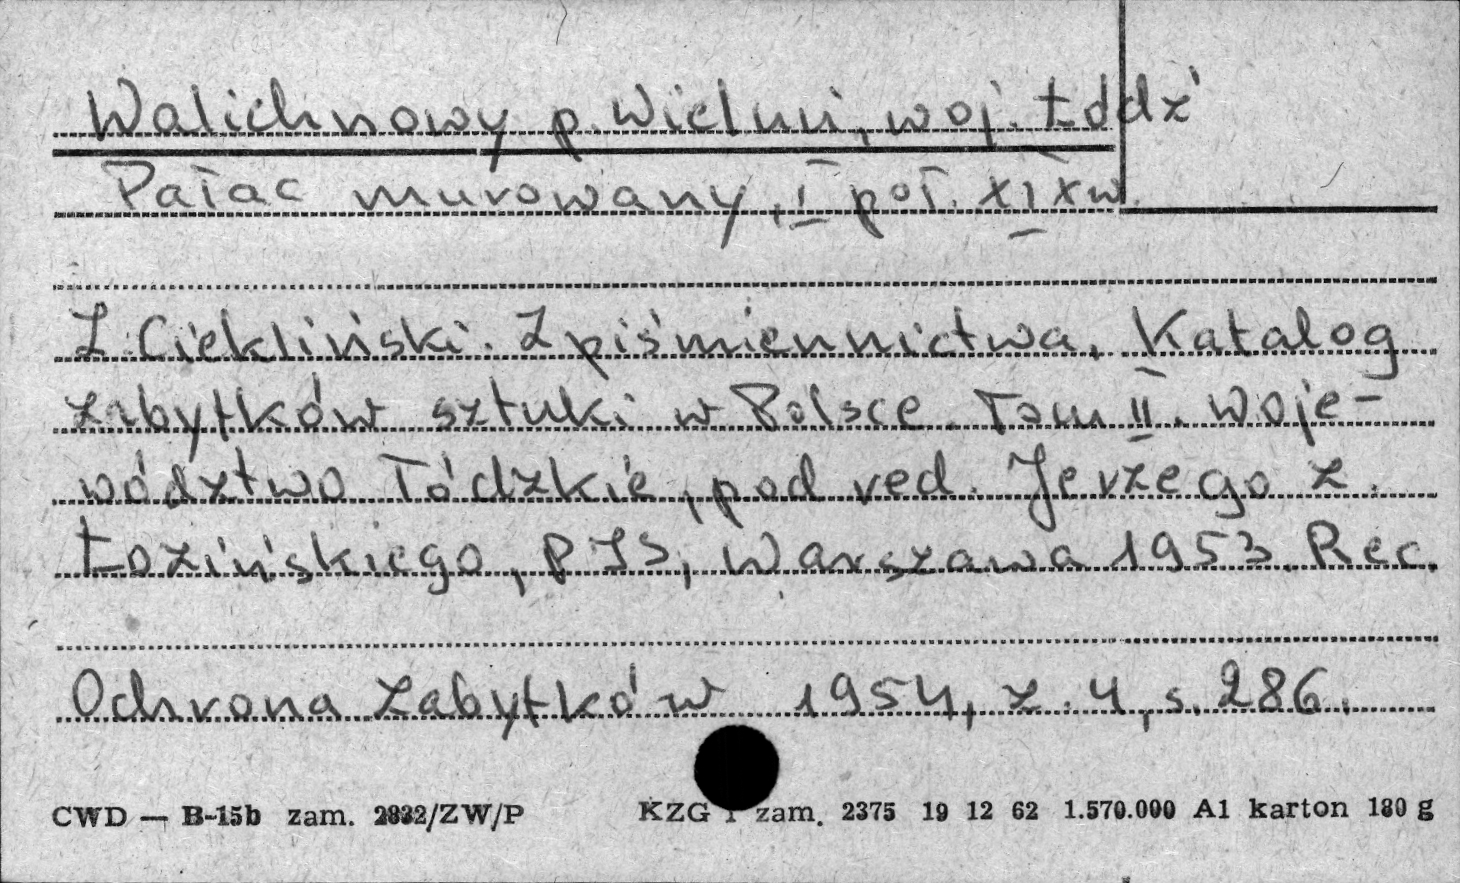 Walichnowy p. Wieluń, woj. Łódź
Pałac murowany, I poł. XIX w.
Z. Ciekliński. Z piśmiennictwa. Katalog
zabytków sztuki w Polsce. Tom II. Woje-
wództwo Łódzkie, pod red. Jerzego Z.
Łozińskiego, PIS, Warszawa 1953. Rec.
Ochrona Zabytków 1954, z. 4, s. 286.
CWD — B-15b zam. 2832/ZW/P KZG 1 zam. 2375 19 12 62 1.570.000 A1 karton 180 g